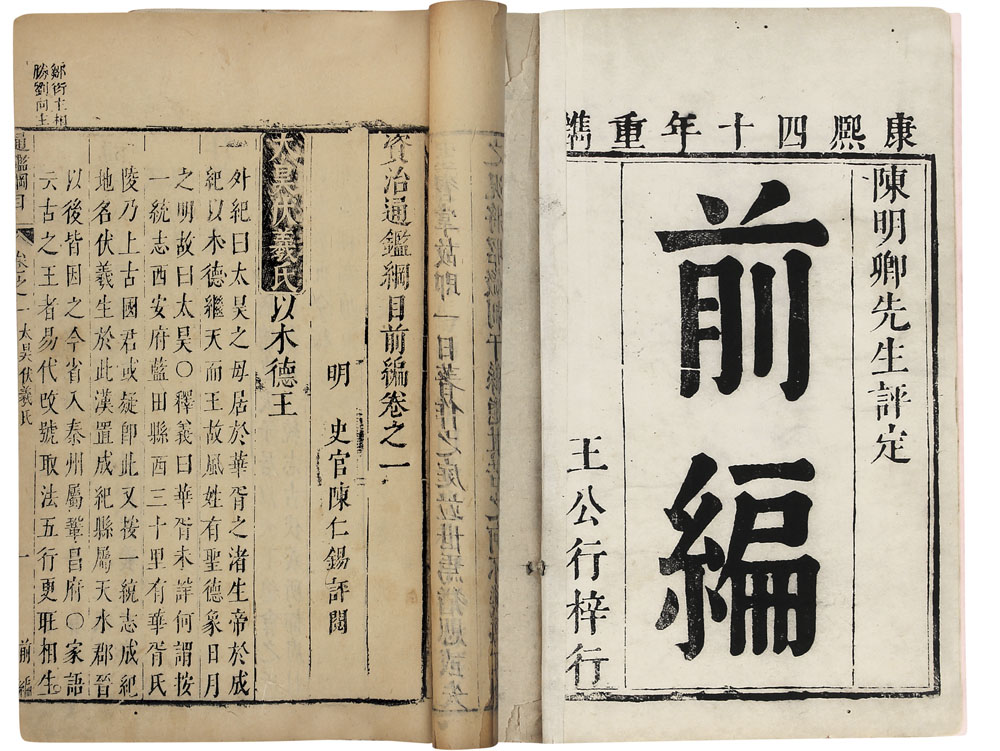 康熙四十年重鐫
陳明卿先生評定
前編
王公行梓行
資治通鑑綱目前編卷之一
明　史官陳仁錫評閱
太昊伏羲氏以木德王
外紀曰太昊之母居於華胥之渚生帝於成
紀以木德繼天而王故風姓有聖德象日月
之明故曰太昊〇釋義曰華胥未詳何謂按
一統志西安府藍田縣西三十里有華胥氏
陵乃上古國君或疑卽此又按一統志成紀
地名伏羲生於此漢置成紀縣屬天水郡晉
以後皆因之今省入秦州屬鞏昌府〇家語
云古之王者易代改號取法五行更王相生
通鑑綱目　卷之一太昊伏羲氏　一　前編
鄒衍主相
勝劉向主